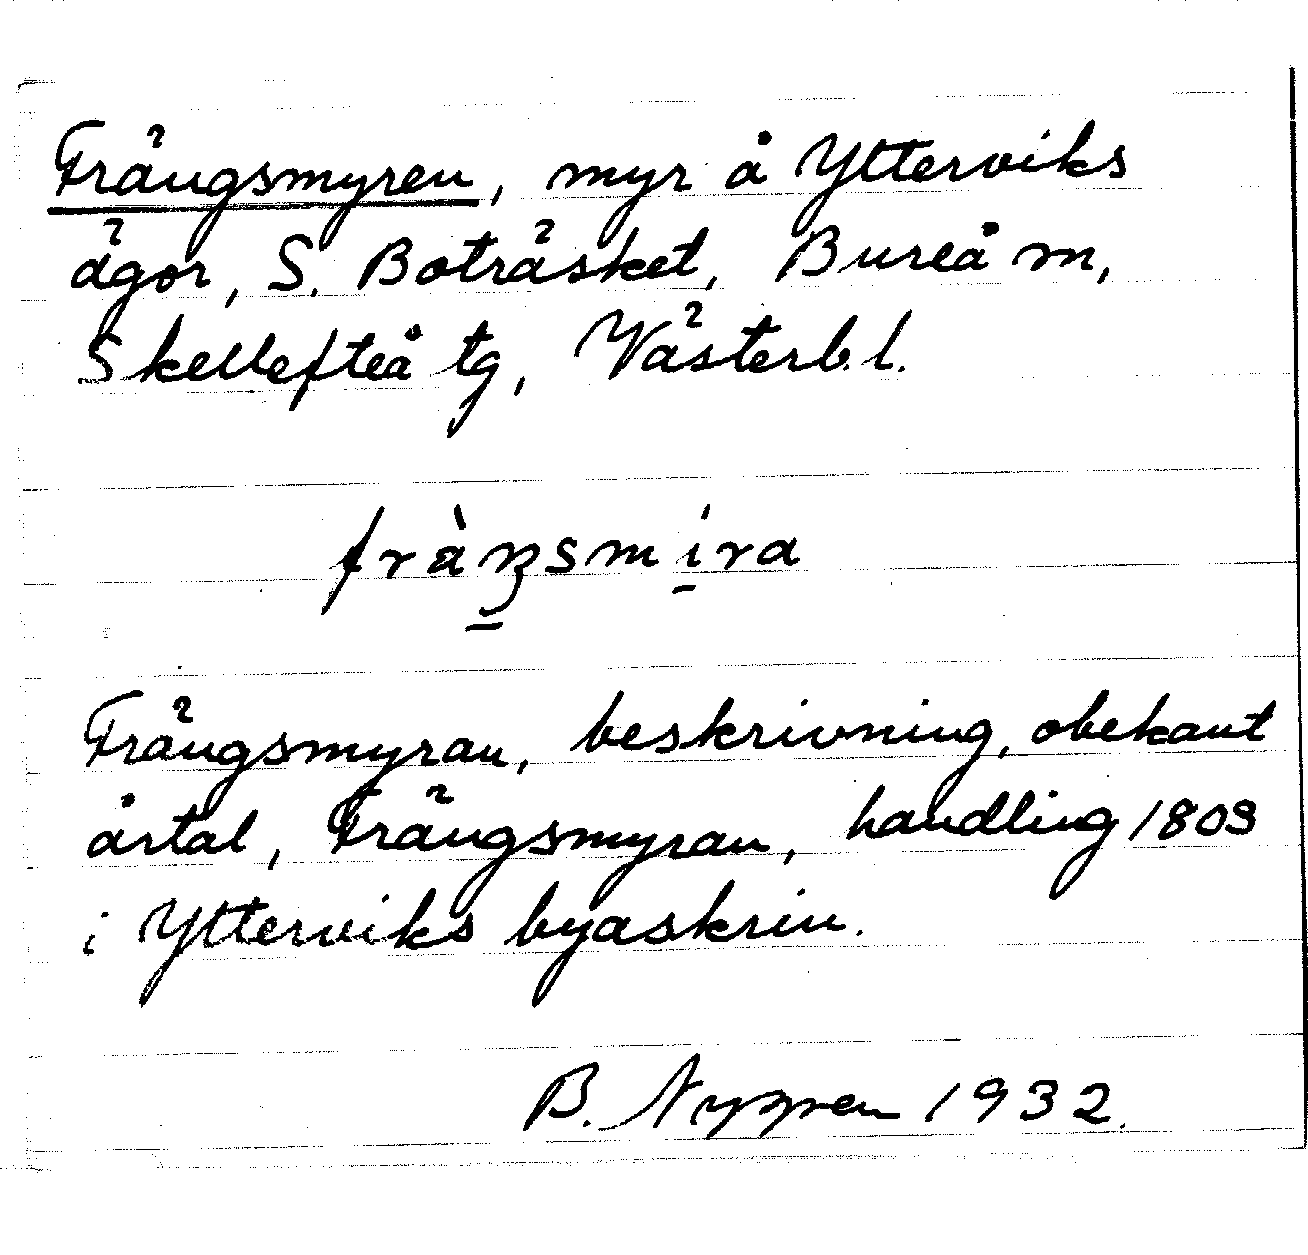 Frängsmyren, myr å Ytterviks
ägor, S. Boträsket, Bureå m,
Skellefteå tg, Västerb.l.
fràŋsmíra
Frängsmyran, beskrivning, obekant
årtal, Frängsmyran, handling 1809
i Ytterviks byaskrin.
B. Nygren 1932.